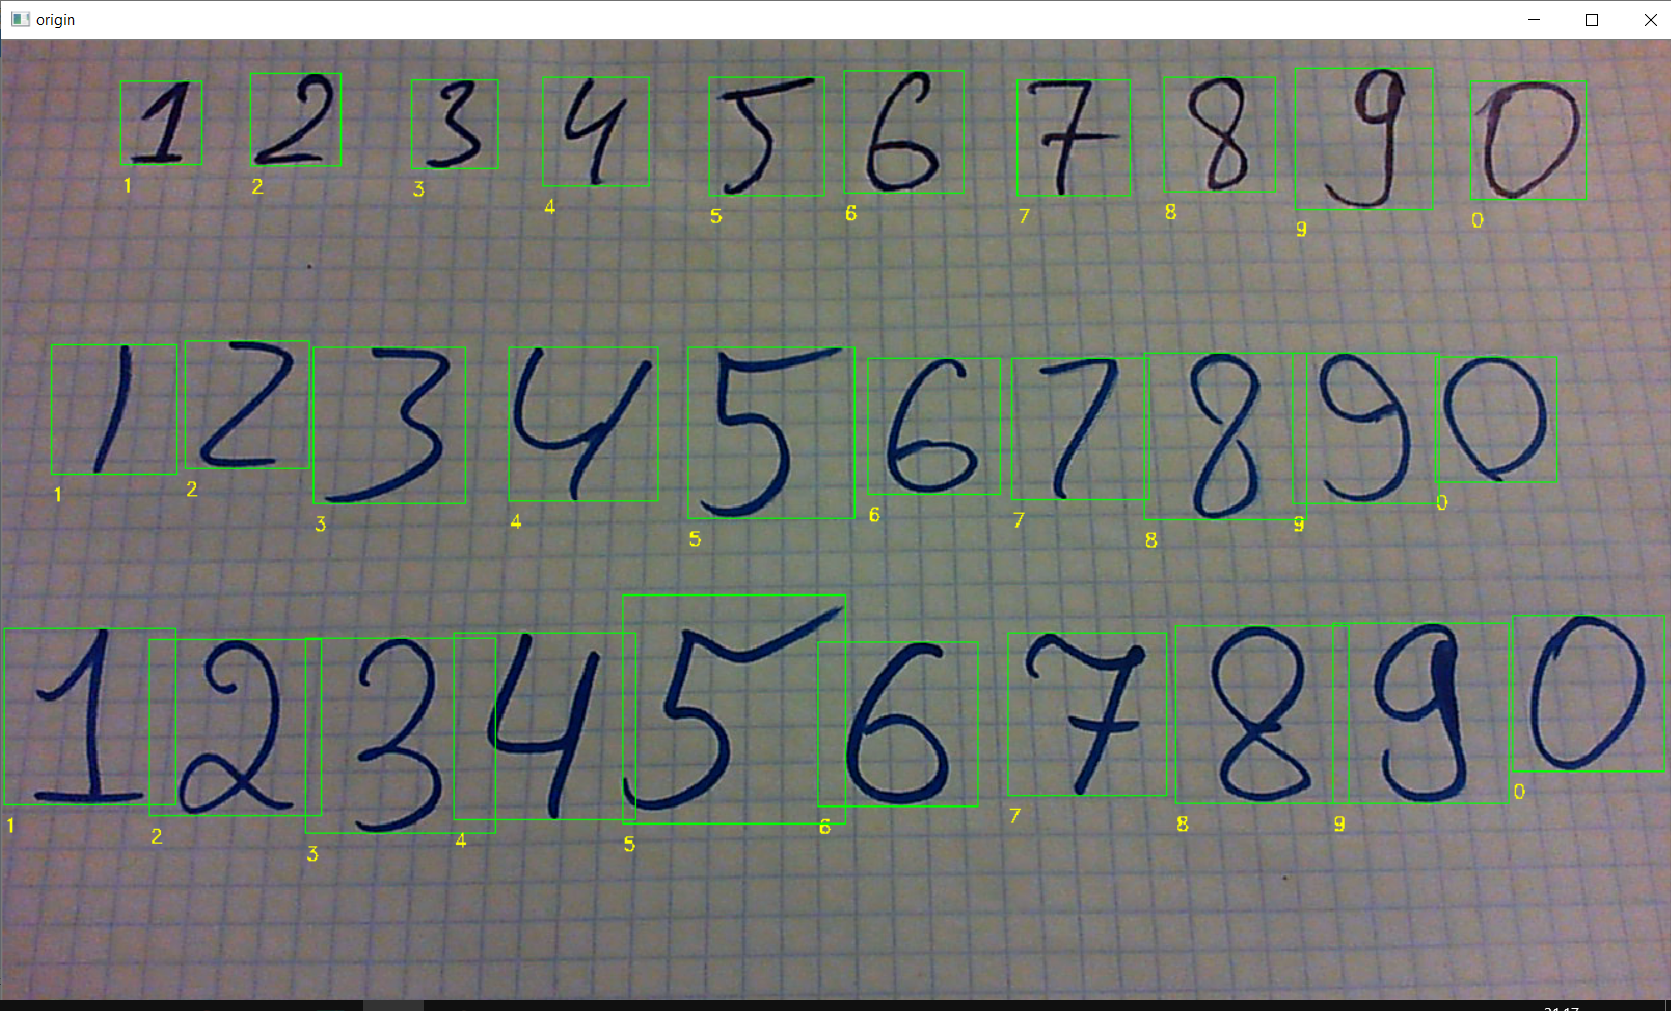 origin
1 2 3 4 5 6 7 8 9 0
1 2 3 4 5 6 7 8 9 0
1 2 3 4 5 6 7 8 9 0
1 2 3 4 5 6 7 8 9 0
1 2 3 4 5 6 7 8 9 0
1 2 3 4 5 6 7 8 9 0